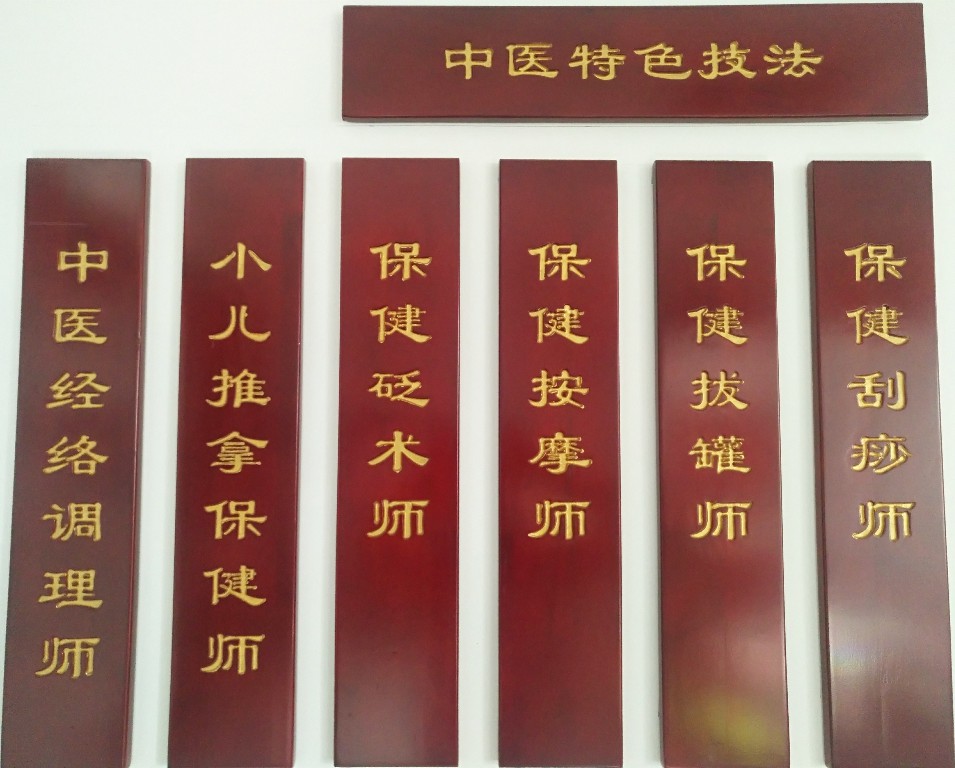 中医特色技法
中医经络调理师
小儿推拿保健师
保健砭术师
保健按摩师
保健拔罐师
保健刮痧师